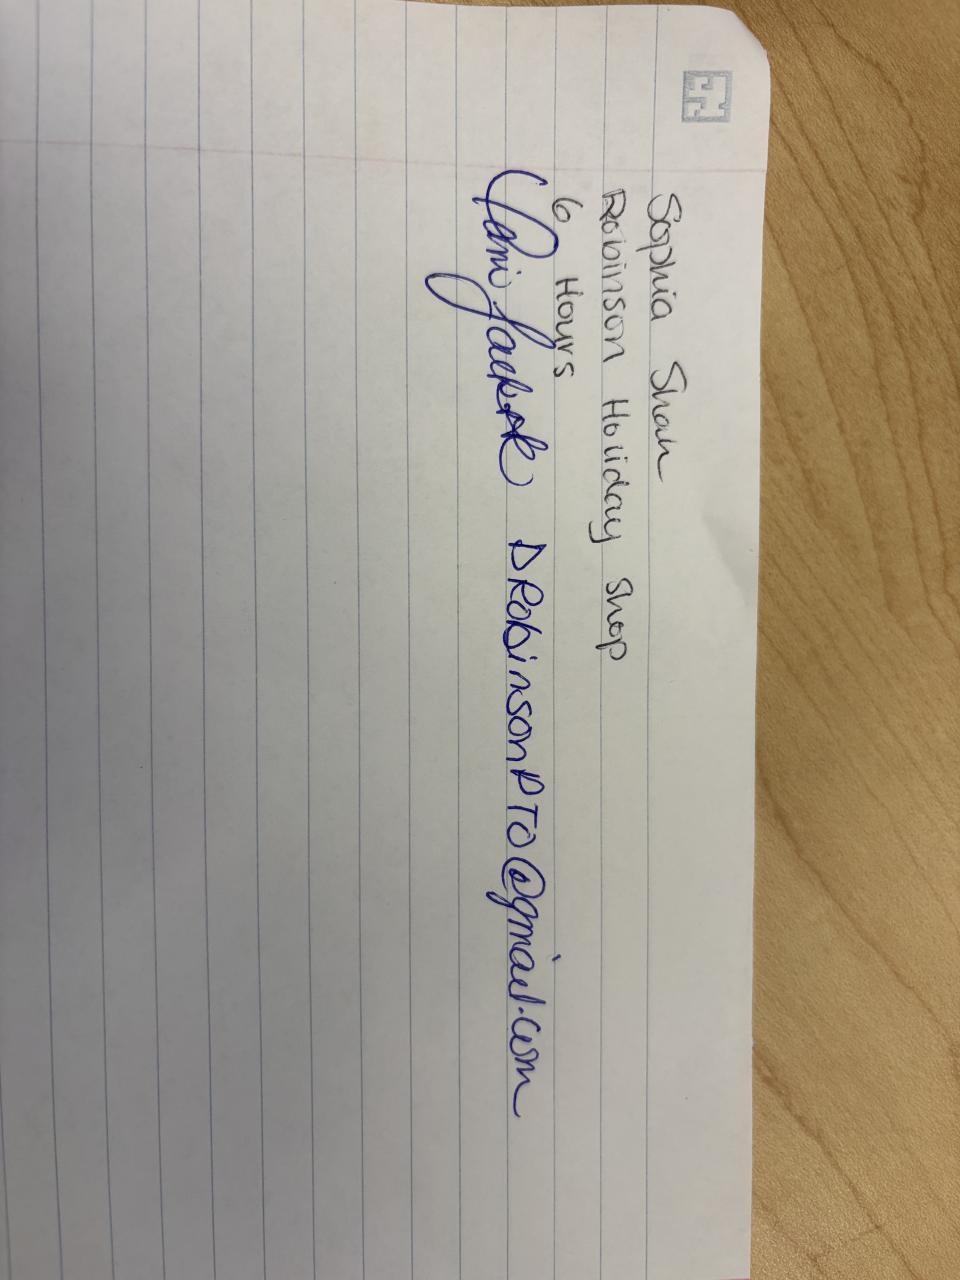 Sophia Shah
Robinson Holiday Shop
6 Hours
DRobinsonPTO@gmail.com